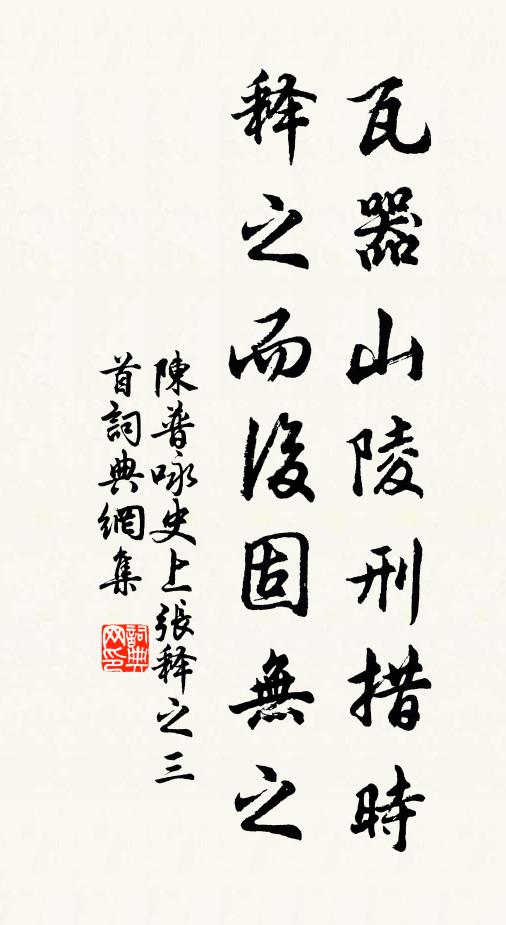 瓦器山陵刑措時
释之而後固無之
陳普咏史上張释之三
首詞典網集
詞典
网印